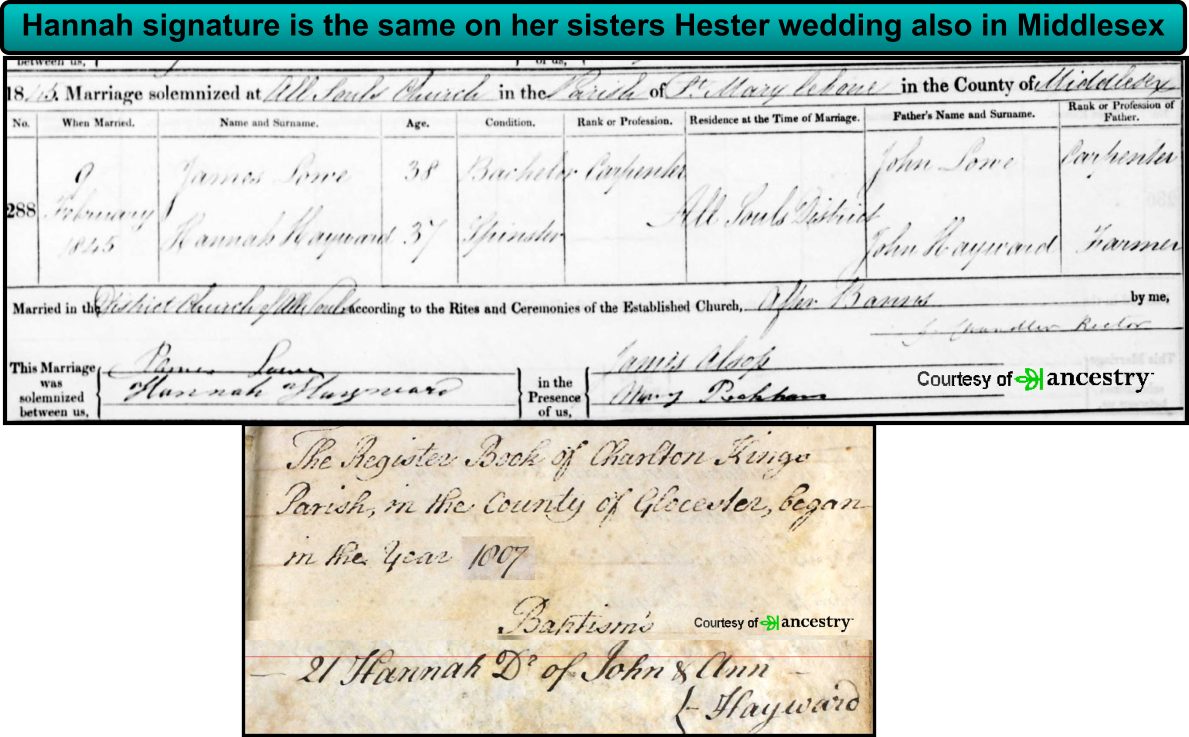 Hannah signature is the same on her sisters Hester wedding also in Middlesex
between us, { of us, {
1845. Marriage solemnized at All Souls Church in the Parish of St. Mary lebone in the County of Middlesex
No. When Married. Name and Surname. Age. Condition. Rank or Profession. Residence at the Time of Marriage. Father's Name and Surname. Rank or Profession of Father.
9 James Lowe 38 Bachelor Carpenter John Lowe Carpenter
288 February All Souls District
1845 Hannah Hayward 37 Spinster John Hayward Farmer
Married in the District Church of All Souls according to the Rites and Ceremonies of the Established Church, After Banns by me,
J. Chandler Rector
This Marriage was solemnized between us, { James Lowe } in the Presence of us, { James Alsop
Hannah Hayward Mary Peckham
Courtesy of ancestry
The Register Book of Charlton Kings
Parish, in the County of Glocester, began
in the Year 1807
Baptism's
Courtesy of ancestry
— 21 Hannah Dr of John & Ann —
{- Hayward